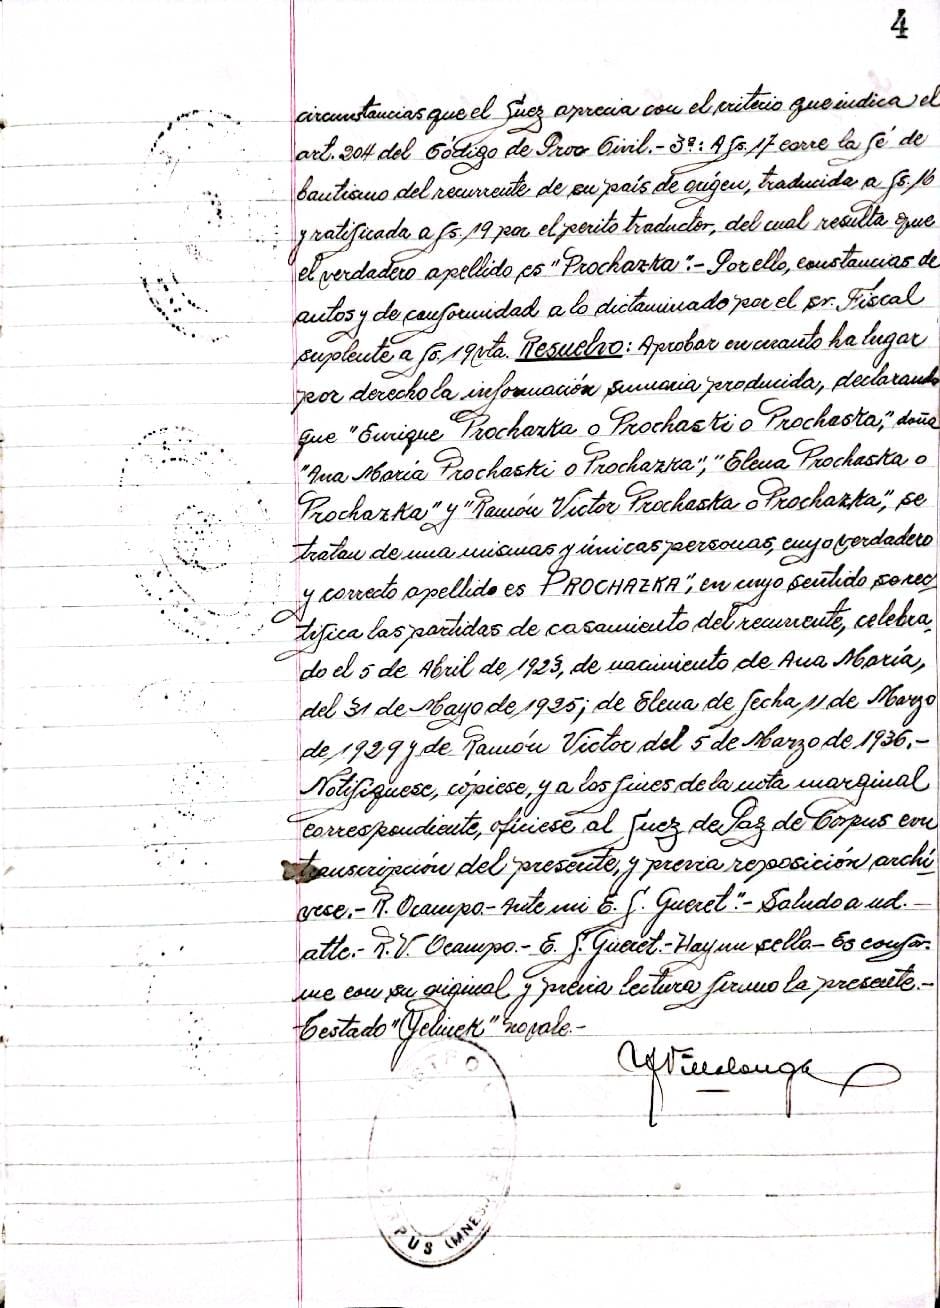 4
circunstancias que el Juez aprecia con el criterio que indica el
art. 204 del Código de Proc Civil.- 3º: A fs. 17 corre la fé de
bautismo del recurrente de su país de orígen, traducida a fs. 16
y ratificada a fs. 19 por el perito traductor, del cual resulta que
el verdadero apellido es "Prochazka".- Por ello, constancias de
autos y de conformidad a lo dictaminado por el sr. Fiscal
suplente a fs. 19 vta. Resuelvo: Aprobar en cuanto ha lugar
por derecho la información sumaria producida, declarando
que "Enrique Prochazka o Prochaski o Prochaska", doña
"Ana María Prochaski o Prochazka", "Elena Prochaska o
Prochazka" y "Ramón Victor Prochaska o Prochazka", se
tratan de una mismas y únicas personas, cuyo verdadero
y correcto apellido es PROCHAZKA", en cuyo sentido se rec
tifica las partidas de casamiento del recurrente, celebra-
do el 5 de Abril de 1923, de nacimiento de Ana María,
del 31 de Mayo de 1925; de Elena de fecha 11 de Marzo
de 1929 y de Ramón Victor del 5 de Marzo de 1936.-
Notifíquese, cópiese, y a los fines de la nota marginal
correspondiente, ofíciese al Juez de Paz de Corpus con
transcripción del presente, y previa reposición archí-
vese.- R. Ocampo.- Ante mi E. J. Gueret".- Saludo a ud.-
atte.- R. V. Ocampo.- E. J. Gueret.- Hay un sello.- Es confor-
me con su original y previa lectura firmo la presente.-
Testado "(Jelinek" no vale.-
Villalonga
CORPUS (MNES.)